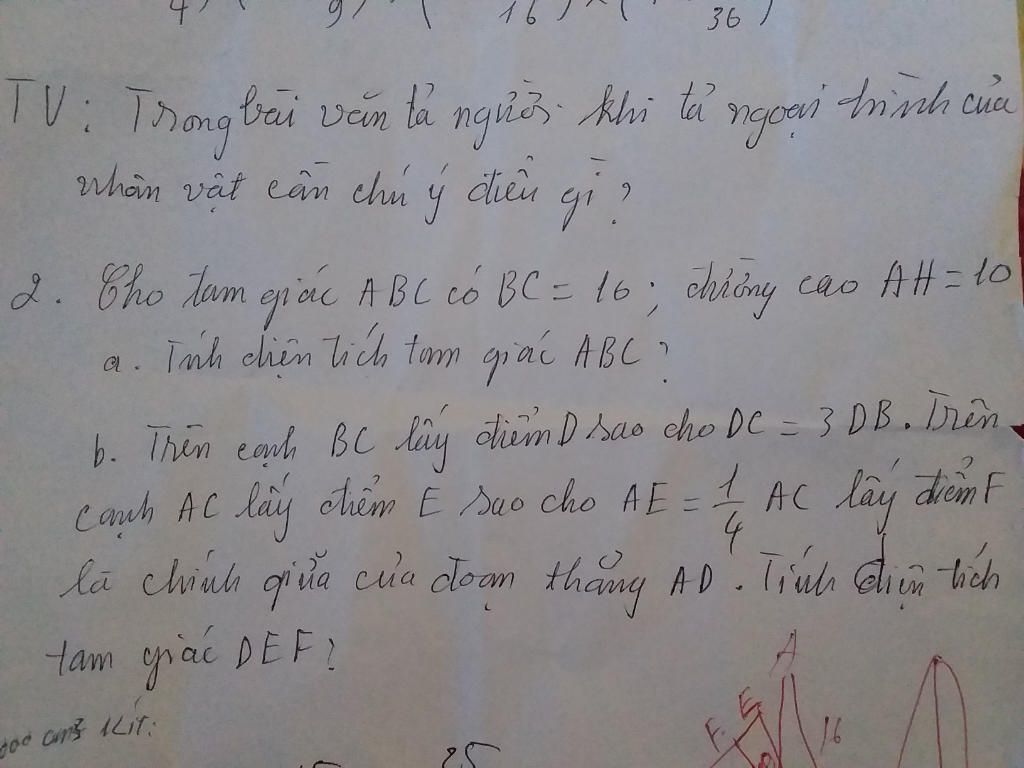 4) 9) ( 16) ( 36)
TV: Trong bài văn tả người khi tả ngoại hình của
nhân vật cần chú ý điều gì?
2. Cho tam giác ABC có BC = 16; đường cao AH = 10
a. Tính diện tích tam giác ABC?
b. Trên cạnh BC lấy điểm D sao cho DC = 3 DB. Trên
cạnh AC lấy điểm E sao cho AE = 1/4 AC lấy điểm F
là chính giữa của đoạn thẳng AD. Tính diện tích
tam giác DEF?
A
F E 16
25